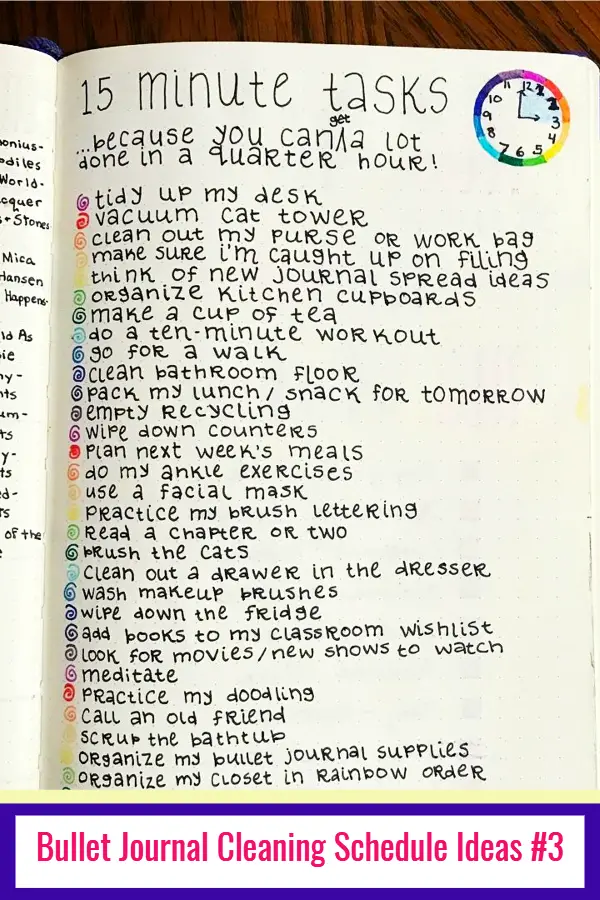 onius-
odiles
World-
cquer
& Stones
Mica
Hansen
Happens-
ld As
ie
ny-
nts
um-
ts
y-
ts
ed-
rs
of the
15 minute tasks
get
...because you can/a lot
done in a quarter hour!
11 12 1 2 3 4 5 6 7 8 9 10
tidy up my desk
vacuum cat tower
clean out my purse or work bag
make sure i'm caught up on filing
think of new journal spread ideas
organize kitchen cupboards
make a cup of tea
do a ten-minute workout
go for a walk
clean bathroom floor
pack my lunch/snack for tomorrow
empty recycling
wipe down counters
plan next week's meals
do my ankle exercises
use a facial mask
practice my brush lettering
read a chapter or two
brush the cats
clean out a drawer in the dresser
wash makeup brushes
wipe down the fridge
add books to my classroom wishlist
look for movies/new shows to watch
meditate
practice my doodling
call an old friend
scrub the bathtub
organize my bullet journal supplies
organize my closet in rainbow order
Bullet Journal Cleaning Schedule Ideas #3